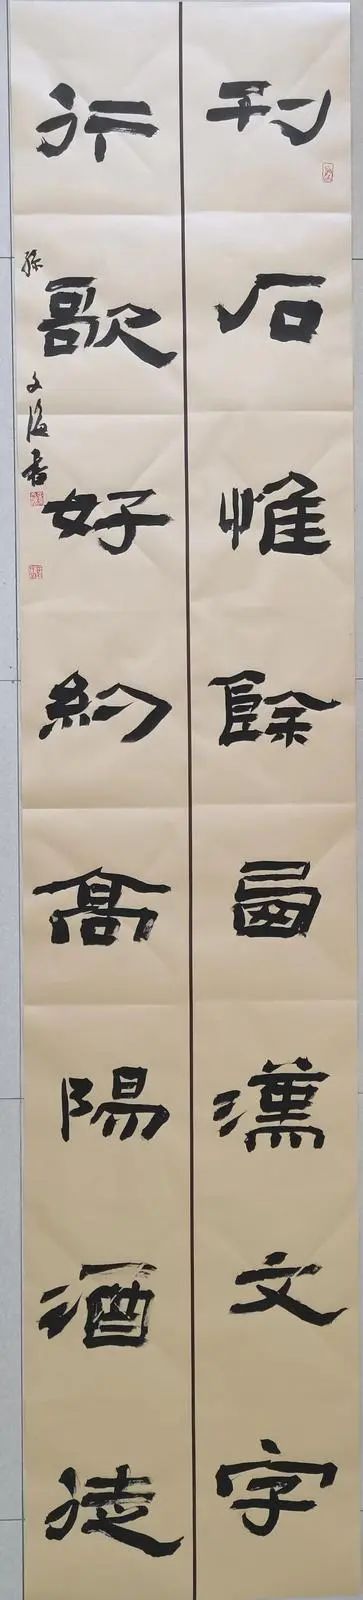 刊石惟餘西漢文字
行歌好約高陽酒徒
孫文海書